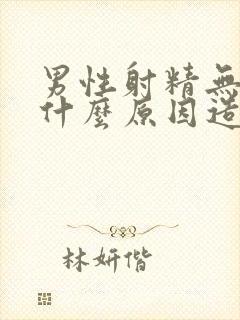 男性射精無
什麼原因造
林妍偕